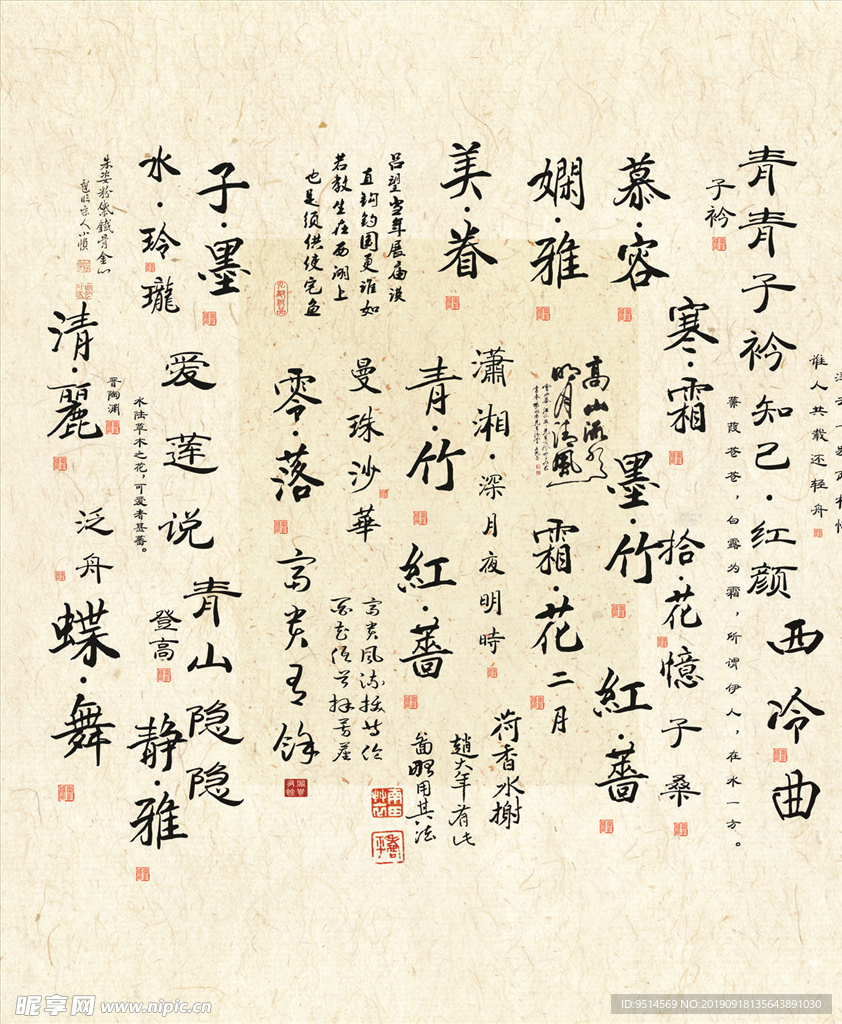 青青子衿知己·红颜
子衿
谁人共载还轻舟
蒹葭苍苍，白露为霜，所谓伊人，在水一方。
西冷曲
慕·容
寒·霜
拾·花
憶子桑
嫻·雅
墨·竹
紅·蔷
高山流水
明月清風
霜·花二月
美·眷
瀟湘·深月夜明時
荷香水榭
趙大年有此
圖略用其法
青·竹
紅·蔷
吕望当年展庙谟
直钩钓国更谁如
若教生在西湖上
也是须供使宅鱼
曼珠沙華
零·落
富贵有馀
子·墨
水·玲瓏
爱莲说
晋陶渊
水陆草木之花，可爱者甚蕃。
青山隐隐
清·麗
泛舟
登高
蝶·舞
静·雅
昵享网 www.nipic.cn
ID:9514569 NO:20190918135643891030